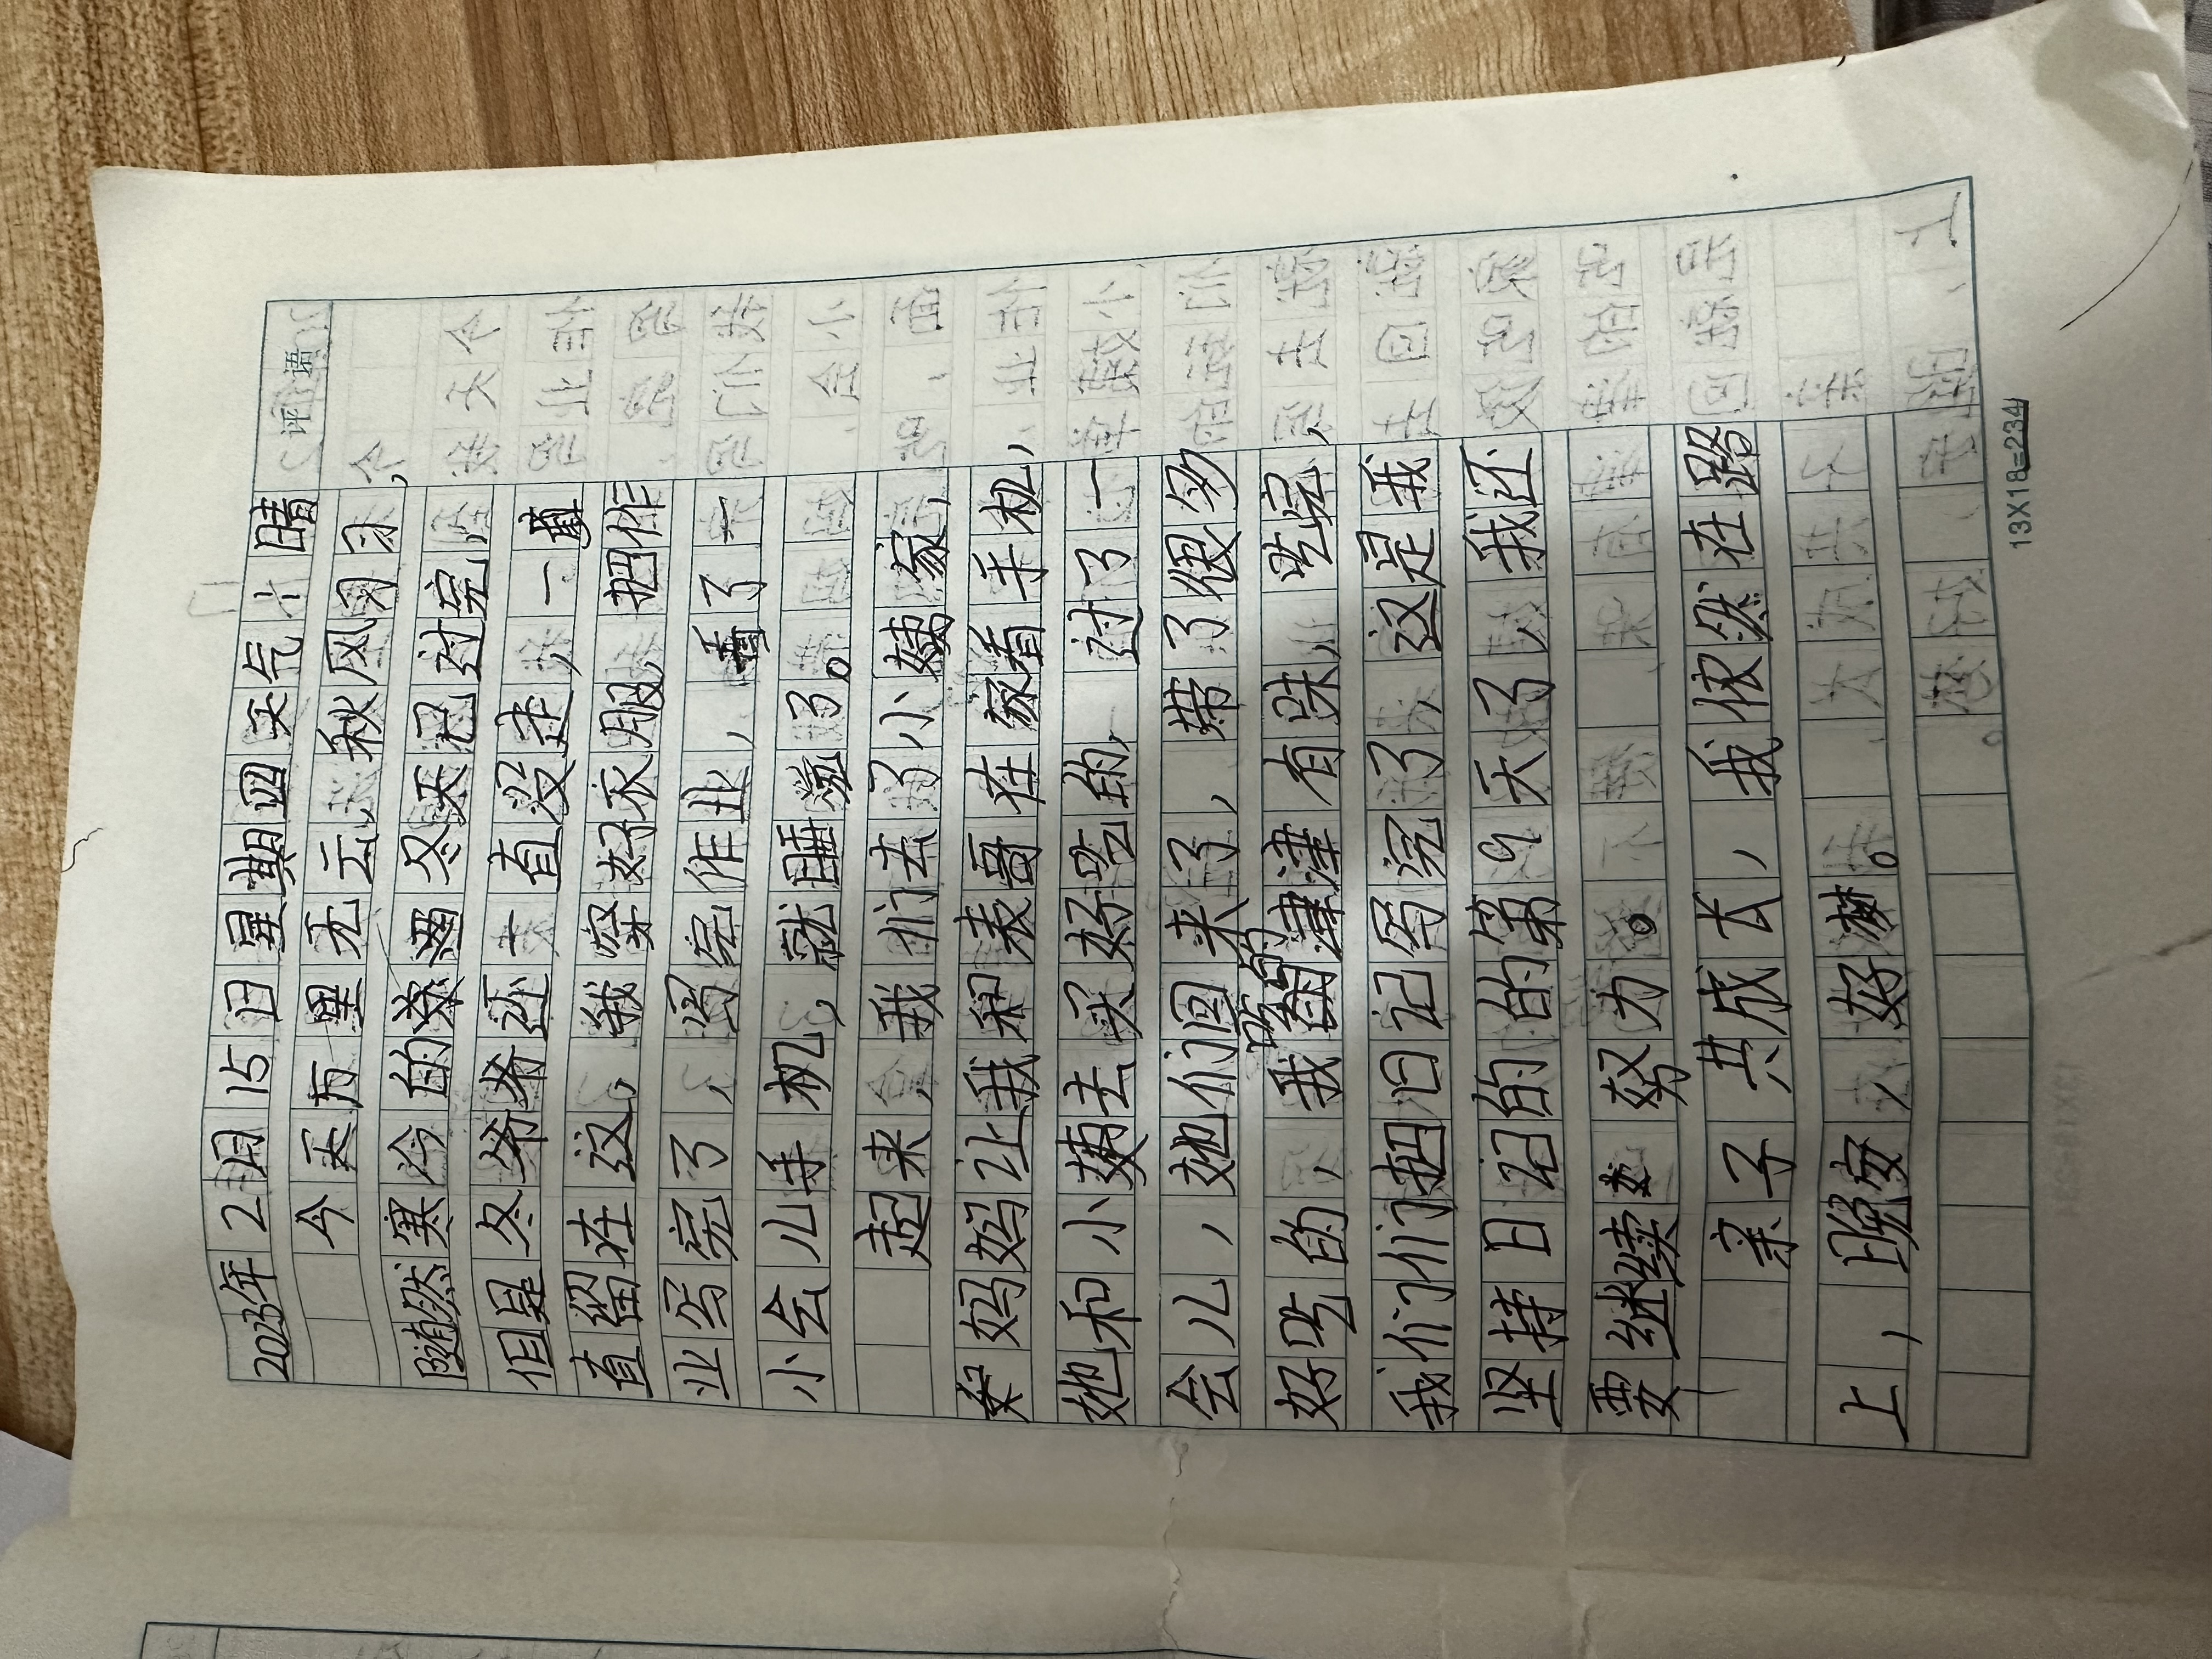 2023年2月15日星期四 天气：晴
评语
今天万里无云，秋风习习，
随然寒冷的冬天已过完，
但是冬爷爷还一直没走，一
直留在这，我穿好衣服，把作
业写完了，写完作业，看了一
小会儿手机，就睡觉了。
起来，我们去了小姨家，
妈妈让我和表哥在家看手机，
她和小姨去买好吃的，过了一
会儿，她们回来了，带了很多
好吃的，我吃的津津有味，吃完，
我们们把日记写完了，这是我
坚持日记的的第9天了，我还
要继续努力。
亲子共成长，我依然在路
上，晚安，好梦。
13X18=234